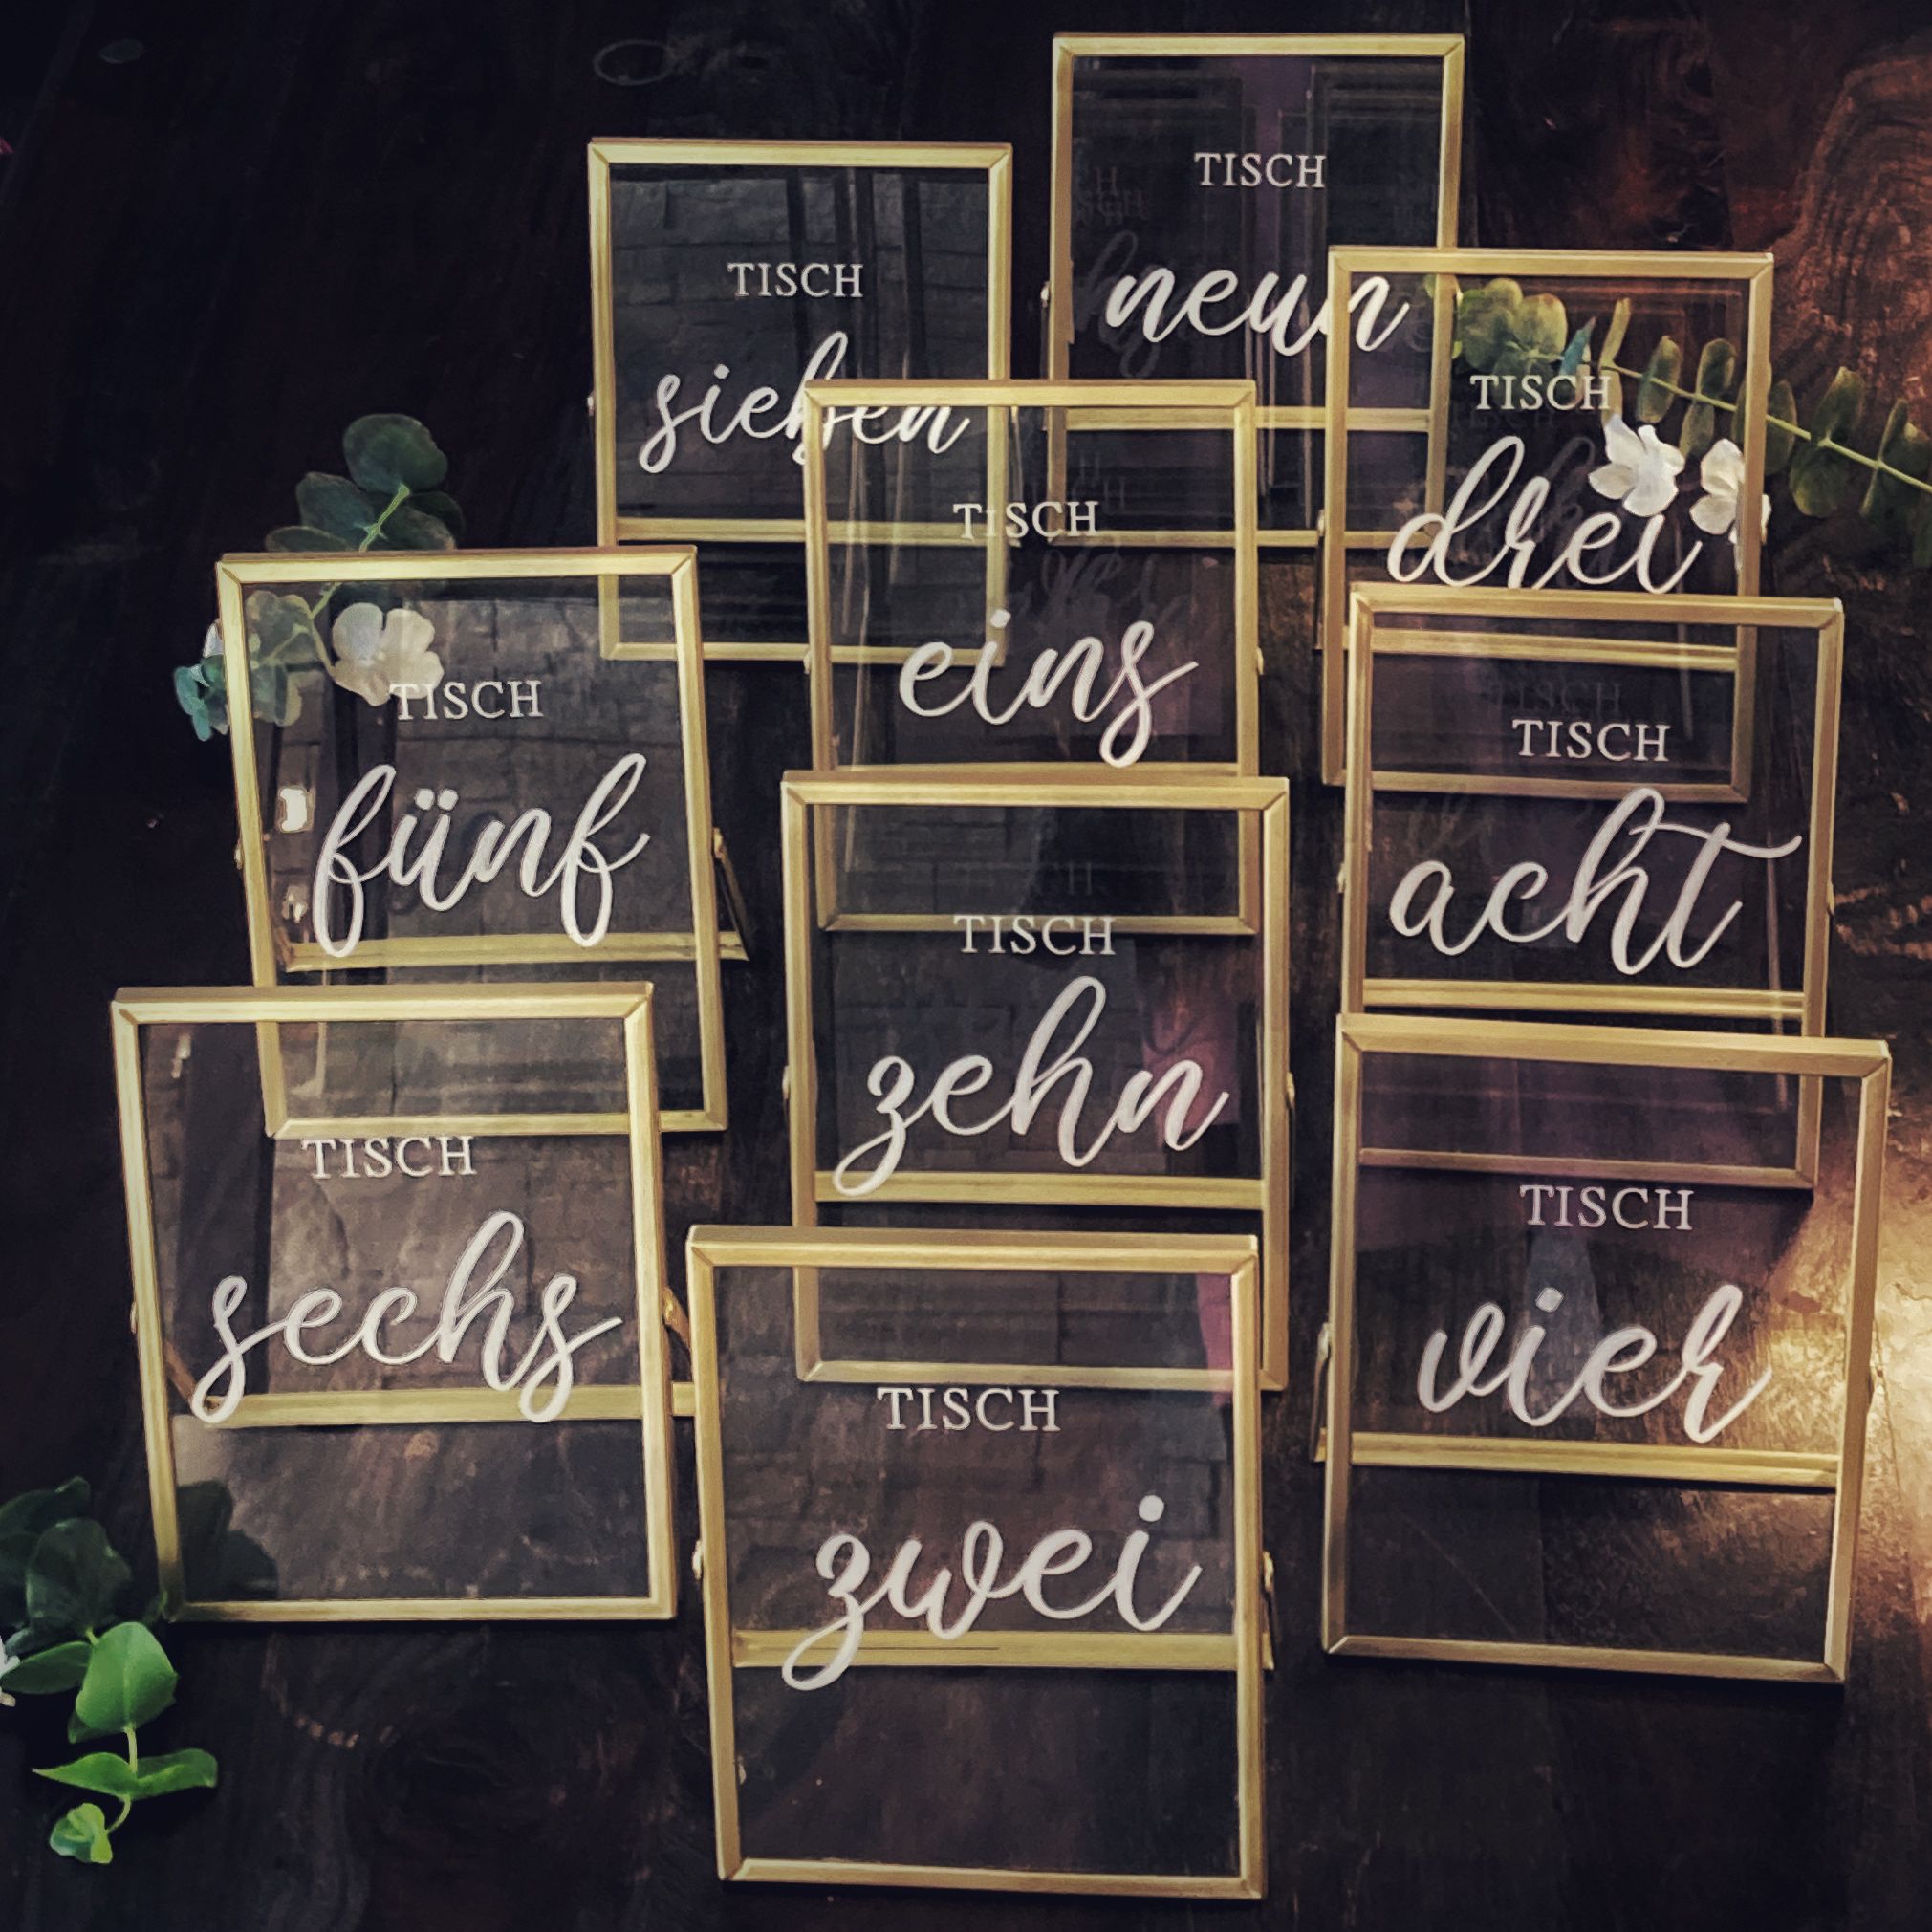 TISCH
neun
TISCH
sieben
TISCH
drei
TISCH
eins
TISCH
fünf
TISCH
acht
TISCH
zehn
TISCH
sechs
TISCH
vier
TISCH
zwei